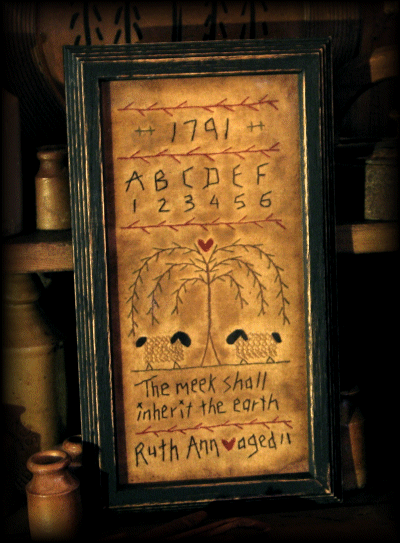 1791
A B C D E F
1 2 3 4 5 6
The meek shall
inherit the earth
Ruth Ann aged 11